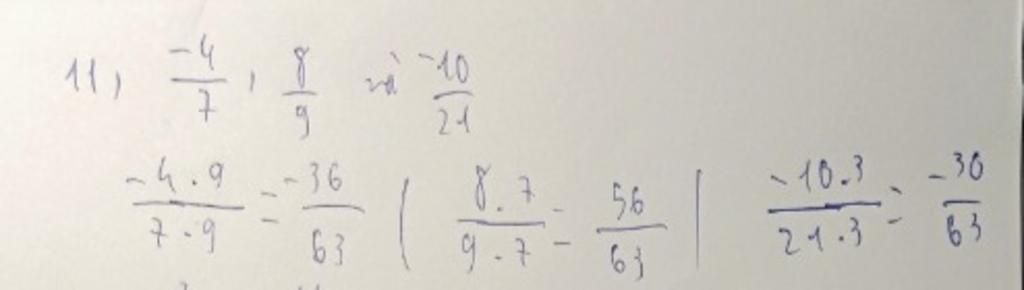 11, -4/7, 8/9 và -10/21
-4.9/7.9 = -36/63 | 8.7/9.7 = 56/63 | -10.3/21.3 = -30/63